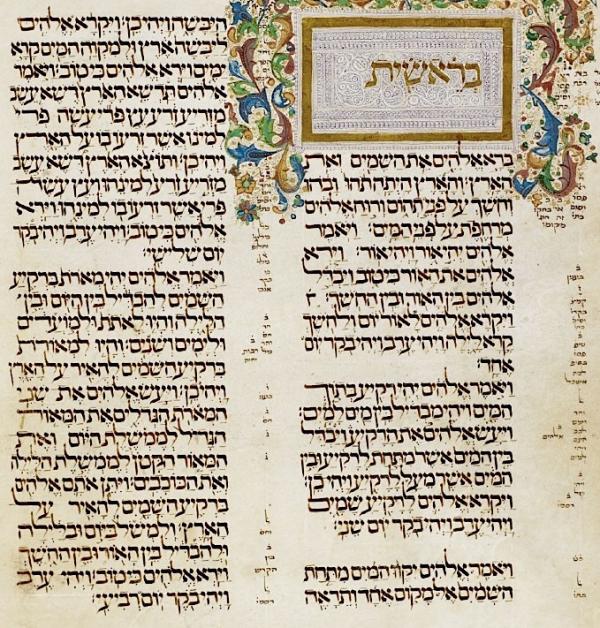 בראשית
ברא אלהים את השמים ואת
הארץ׃ והארץ היתה תהו ובהו
וחשך על פני תהום ורוח אלהים
מרחפת על פני המים׃ ויאמר
אלהים יהי אור ויהי אור׃ וירא
אלהים את האור כי טוב ויבדל
אלהים בין האור ובין החשך׃
ויקרא אלהים לאור יום ולחשך
קרא לילה ויהי ערב ויהי בקר יום
אחד׃
ויאמר אלהים יהי רקיע בתוך
המים ויהי מבדיל בין מים למים׃
ויעש אלהים את הרקיע ויבדל
בין המים אשר מתחת לרקיע ובין
המים אשר מעל לרקיע ויהי כן׃
ויקרא אלהים לרקיע שמים
ויהי ערב ויהי בקר יום שני׃
ויאמר אלהים יקוו המים מתחת
השמים אל מקום אחד ותראה
היבשה ויהי כן׃ ויקרא אלהים
ליבשה ארץ ולמקוה המים קרא
ימים וירא אלהים כי טוב׃ ויאמר
אלהים תדשא הארץ דשא עשב
מזריע זרע עץ פרי עשה פרי
למינו אשר זרעו בו על הארץ
ויהי כן׃ ותוצא הארץ דשא עשב
מזריע זרע למינהו ועץ עשה
פרי אשר זרעו בו למינהו וירא
אלהים כי טוב׃ ויהי ערב ויהי בקר
יום שלישי׃
ויאמר אלהים יהי מארת ברקיע
השמים להבדיל בין היום ובין
הלילה והיו לאתת ולמועדים
ולימים ושנים׃ והיו למאורת
ברקיע השמים להאיר על הארץ
ויהי כן׃ ויעש אלהים את שני
המארת הגדלים את המאור
הגדל לממשלת היום ואת
המאור הקטן לממשלת הלילה
ואת הכוכבים׃ ויתן אתם אלהים
ברקיע השמים להאיר על
הארץ׃ ולמשל ביום ובלילה
ולהבדיל בין האור ובין החשך
וירא אלהים כי טוב׃ ויהי ערב
ויהי בקר יום רביעי׃